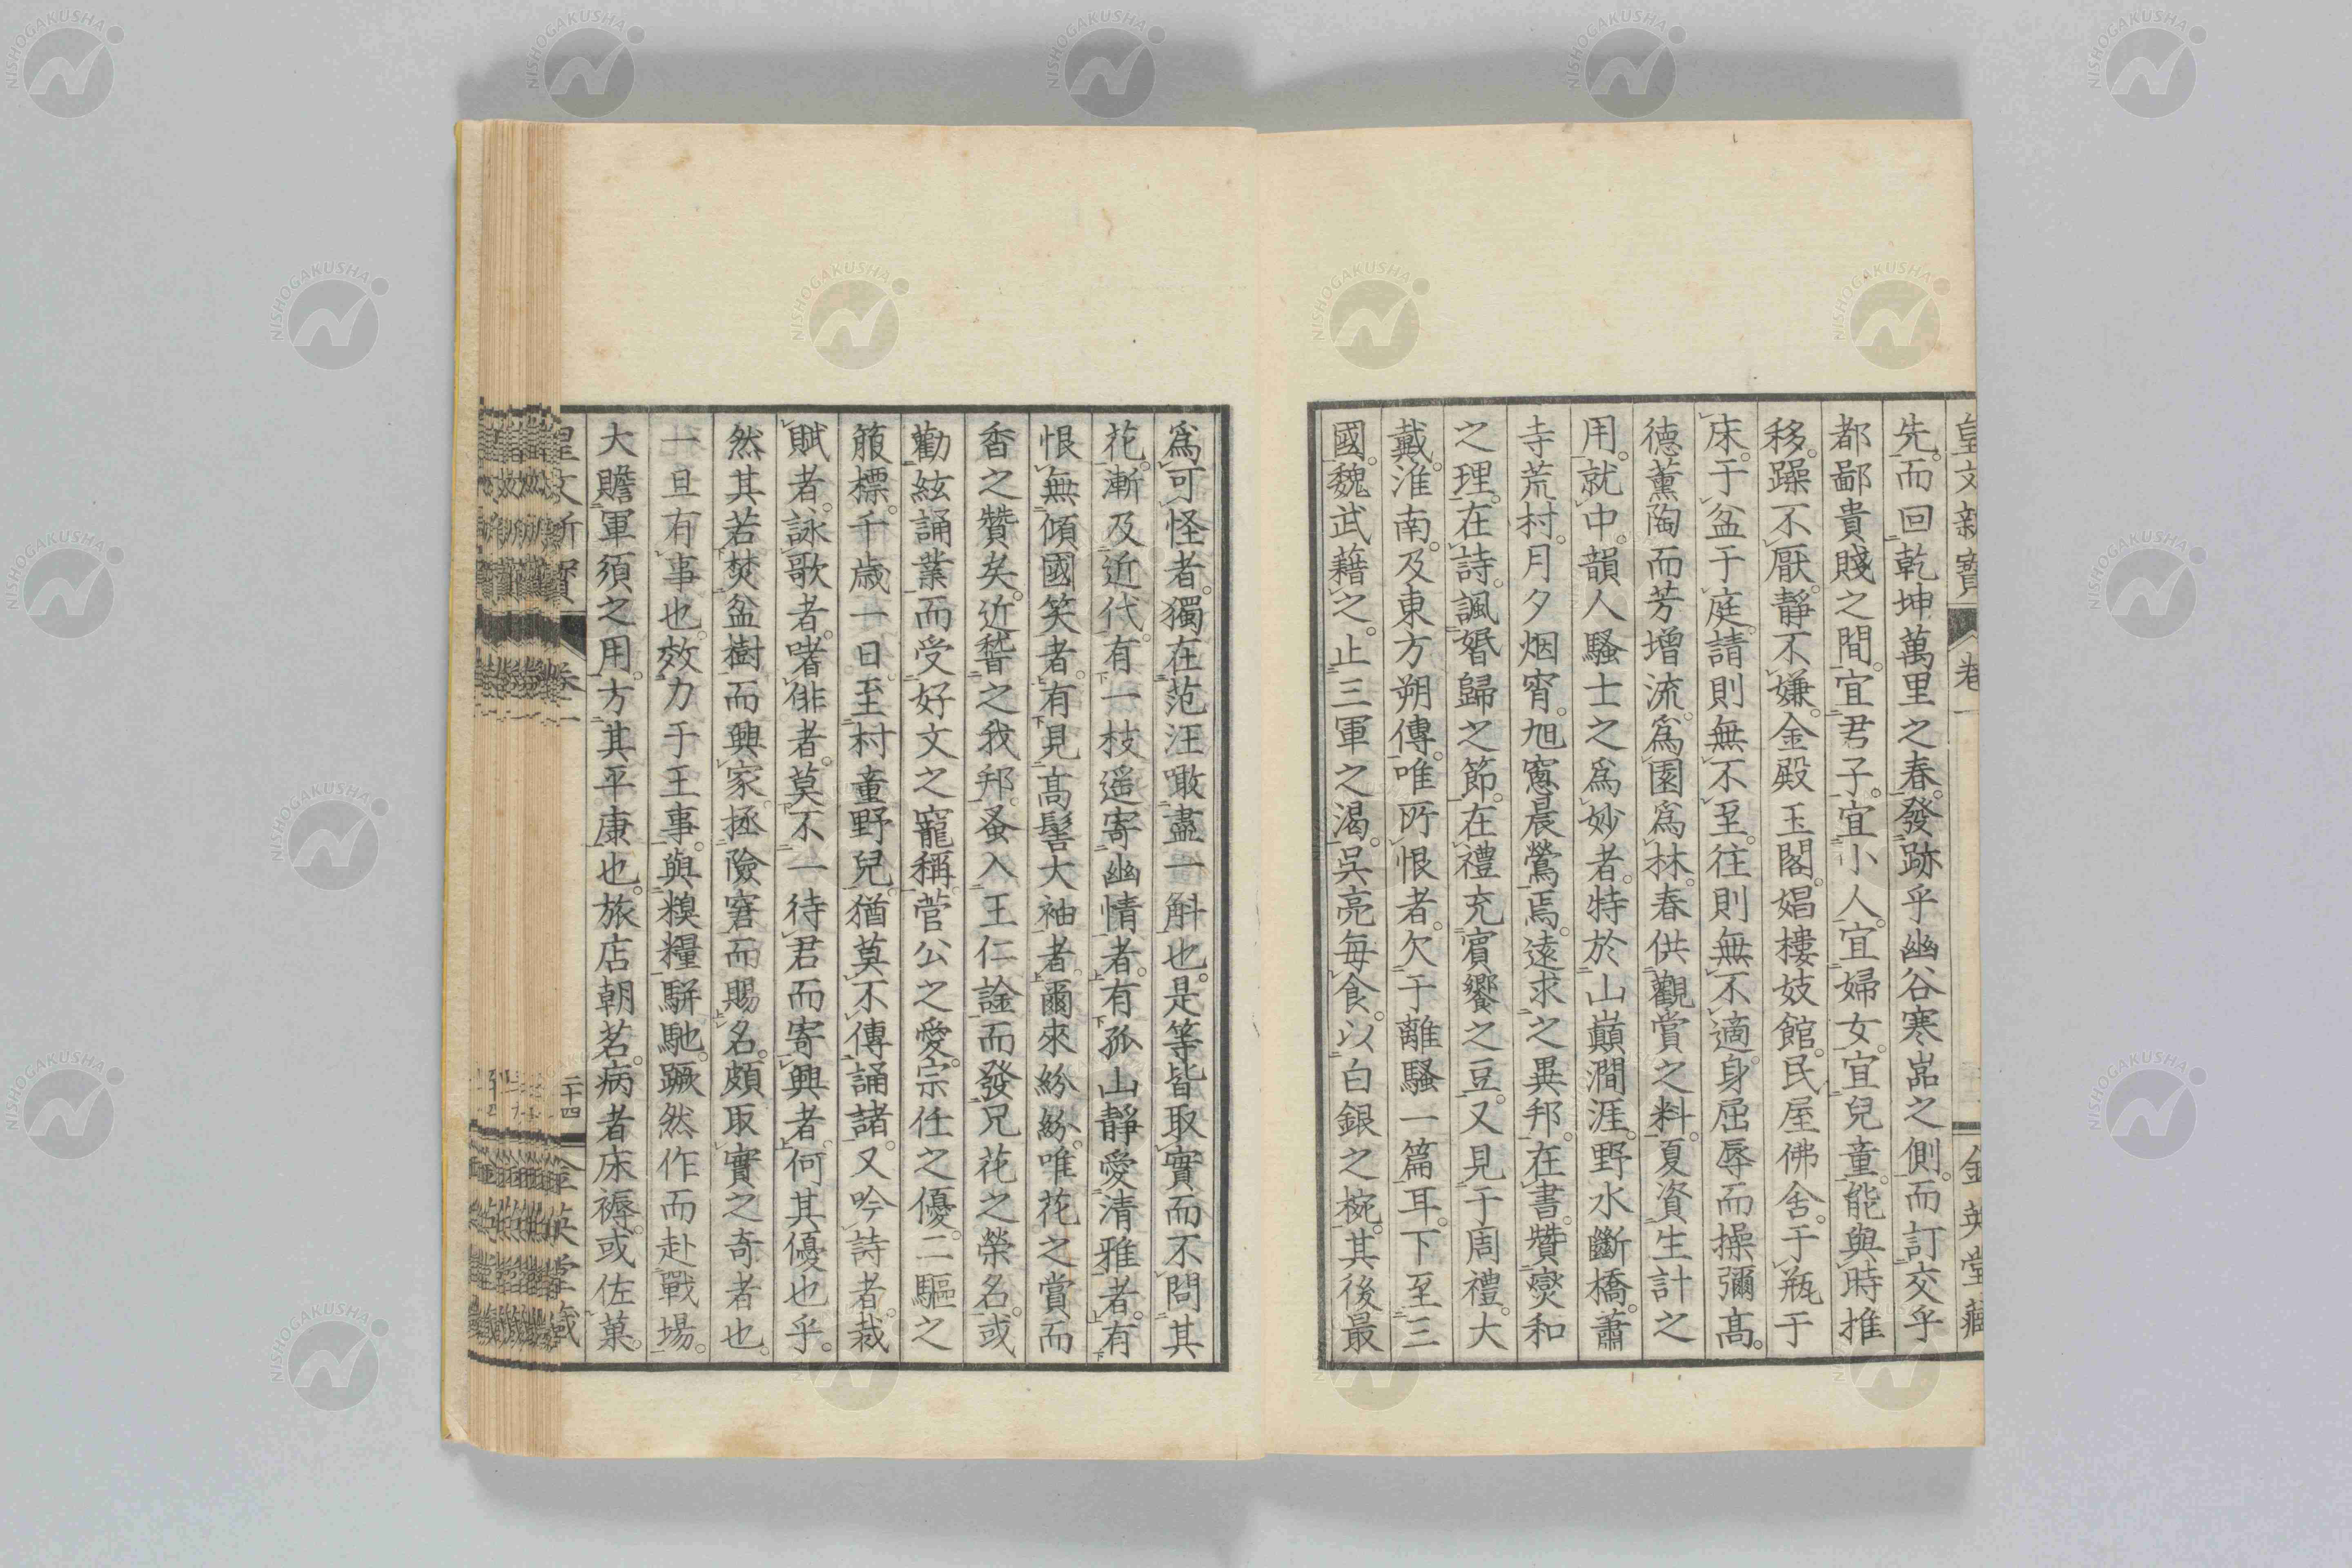 皇文新寶 卷一 金英堂藏
先。而回乾坤萬里之春。發跡乎幽谷寒嵓之側。而訂交乎
都鄙貴賤之間。宜君子。宜小人。宜婦女。宜兒童。能與時推
移。躁不厭。靜不嫌。金殿玉閣。娼樓妓館。民屋佛舍。于瓶于
床。于盆于庭。請則無不至。往則無不適。身屈辱而操彌髙。
德薫陶而芳增流。爲園爲林。春供觀賞之料。夏資生計之
用。就中。韻人騷士之爲妙者。特於山巔澗涯。野水斷橋。蕭
寺荒村。月夕烟宵。旭窻晨鶯焉。遠求之異邦。在書。贊爕和
之理。在詩。諷婚歸之節。在禮充賔饗之豆。又見于周禮。大
戴。淮南。及東方朔傳。唯所恨者。欠于離騷一篇耳。下至三
國。魏武藉之。止三軍之渴。吳亮每食。以白銀之椀。其後最
爲可怪者。獨在范汪噉盡一斛也。是等皆取實而不問其
花。漸及近代。有一枝遥寄幽情者。有孤山靜愛清雅者。有
恨無傾國笑者。有見髙髻大袖者。爾來紛紛。唯花之賞而
香之贊矣。近嵆之我邦。蚤入王仁諭而發兄花之榮名。或
勸絃誦業而受好文之寵稱。菅公之愛。宗任之優。二驅之
箙標。千歲一日。至村童野兒。猶莫不傳誦諸。又吟詩者。裁
賦者。詠歌者。啫俳者。莫不一待君而寄興者。何其優也乎。
然其若焚盆樹而興家。拯險窘而賜名。頗取實之奇者也。
一旦有事也。效力于王事。與糗糧駢馳。蹶然作而赴戰場。
大贍軍須之用。方其平康也。旅店朝茗。病者床褥。或佐菓。
皇文新寶 卷一 二十四 金英堂藏